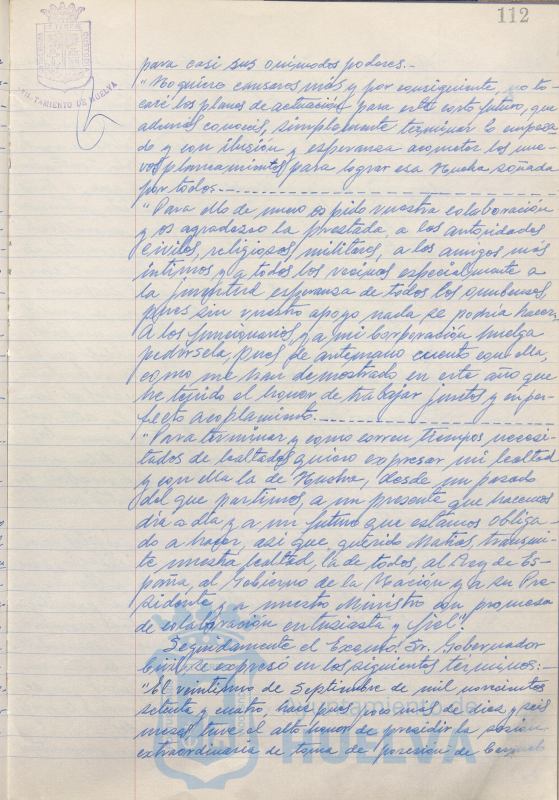 112
AYUNTAMIENTO DE HUELVA
para casi sus omnímodos poderes.-
"No quiero cansaros más y por consiguiente, no to-
caré los planes de actuación para este corto futuro, que
además conocéis, simplemente terminar lo empeza-
do y con ilusión y esperanza acometer los nue-
vos planeamientos para lograr esa Huelva soñada
por todos.-
"Para ello de nuevo os pido vuestra colaboración
y os agradezco la prestada, a las autoridades
civiles, religiosas militares, a los amigos más
íntimos y a todos los vecinos especialmente a
la juventud esperanza de todos los onubenses,
pues sin vuestro apoyo nada se podría hacer.
A los funcionarios, y a mi Corporación huelga
pedírsela, pues de antemano cuento con ella,
como me han demostrado en este año que
he tenido el honor de trabajar juntos y en per-
fecto acoplamiento.
"Para terminar y como corren tiempos necesi-
tados de lealtades quiero expresar mi lealtad
y con ella la de Huelva, desde un pasado
del que partimos, a un presente que hacemos
día a día y a un futuro que estamos obliga-
do a hacer, así que, querido Matías, transmi-
te nuestra lealtad, la de todos, al Rey de Es-
paña, al Gobierno de la Nación y a su Pre-
sidente y a nuestro Ministro con promesa
de colaboración entusiasta y fiel".
Seguidamente el Excmo. Sr. Gobernador
Civil se expresó en los siguientes términos:
"El veintiuno de Septiembre de mil novecientos
setenta y cuatro, hace pues poco más de diez y seis
meses, tuve el alto honor de presidir la sesión
extraordinaria de toma de posesión de
Ayuntamiento de
HUELVA